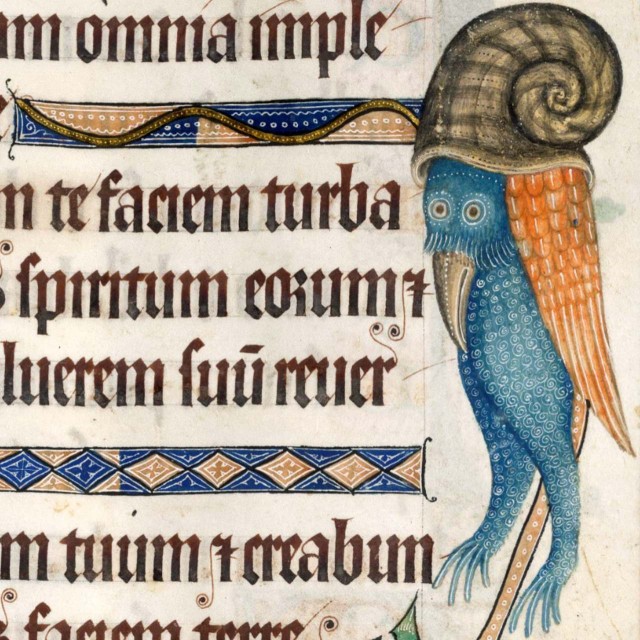 um omnia imple
m te faciem turba
s spiritum eorum ⁊
luerem suū reuer
m tuum ⁊ creabun
s faciem terre